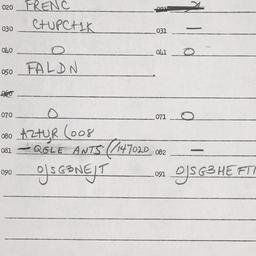 020 FRENC
030 CTUPCT1K 031 —
040 O 041 O
050 FALDN
070 O 071 O
080 AZTUR (008
081 —QGLE ANTS (/147020 082 —
090 OJSG3NEJT 091 OJSG3HEFT